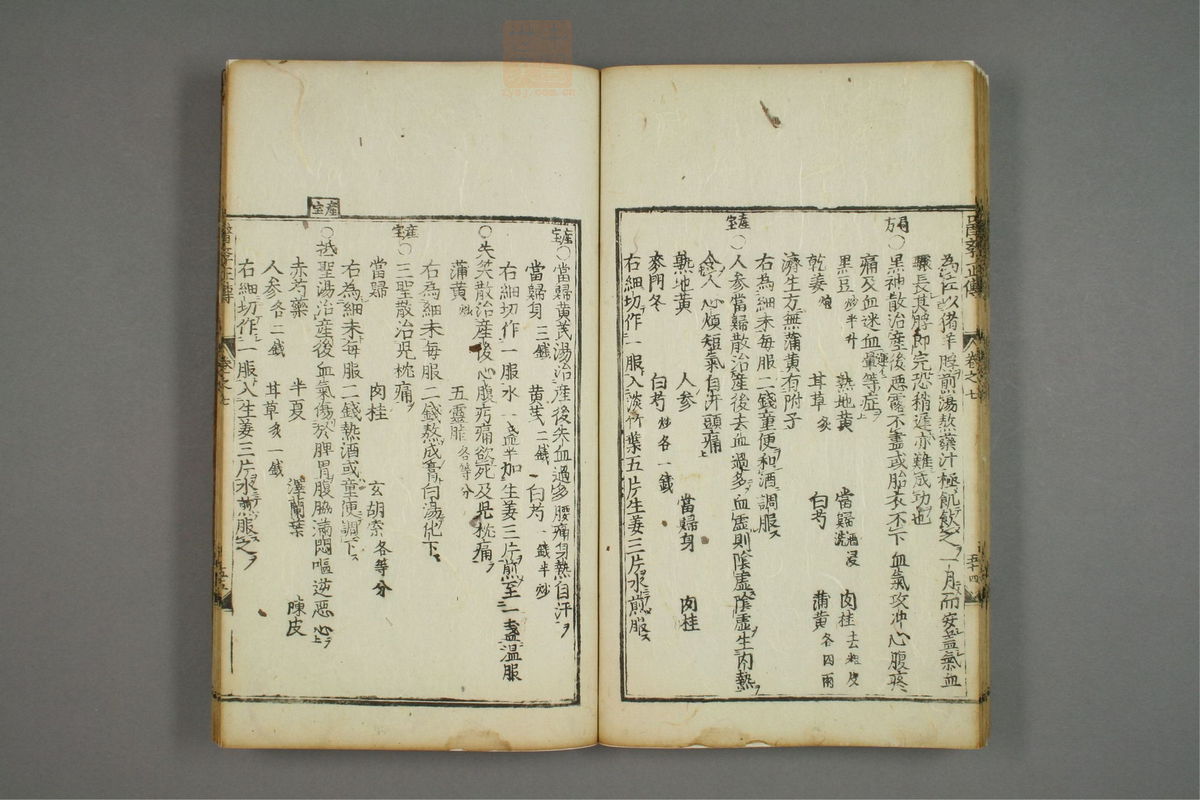 醫學正傳 卷之七 五十四
為以猪羊脬煎湯熬藥汁極飢飲之一月而安盖氣血
驟長其脬即完恐稍遲亦難成功也
局方
○黑神散治産後惡露不盡或胎衣不下血氣攻冲心腹疼
痛及血迷血暈等症
黑豆炒半升 熟地黄 當歸酒浸洗 肉桂去粗皮
乾姜 甘草炙 白芍 蒲黄各四兩
濟生方無蒲黄有附子
右為細末每服二錢童便和酒調服
産宝
○人参當歸散治産後去血過多血虛則陰虛陰虛生內熱
令人心煩短氣自汗頭痛
熟地黄 人参 當歸身 肉桂
麥門冬 白芍炒各一錢
右細切作一服入淡竹葉五片生姜三片水煎服
産宝
○當歸黄芪湯治産後失血過多腰痛身熱自汗
當歸身三錢 黄芪二錢 白芍一錢半炒
右細切作一服水一盞半加生姜三片煎至一盞温服
○失笑散治産後心腹疞痛欲死及児枕痛
蒲黄炒 五靈脂各等分
右為細末每服二錢熬成膏白湯化下
産宝
○三聖散治児枕痛
當歸 肉桂 玄胡索各等分
右為細末每服二錢熱酒或童便調下
産宝
○祗聖湯治産後血氣傷於脾胃腹脇滿悶嘔逆惡心
赤芍藥 半夏 澤蘭葉 陳皮
人参各二錢 甘草炙一錢
右細切作一服入生姜三片水煎服之
醫學正傳 卷之七